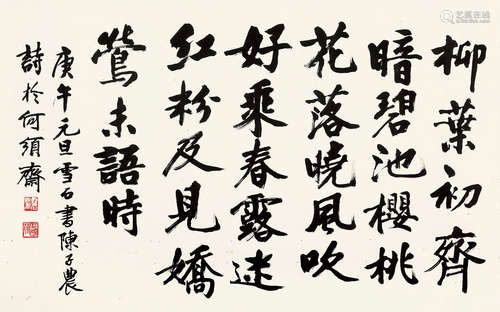 柳葉初齊
暗碧池櫻桃
花落曉風吹
好乘春露迷
紅粉及見嬌
鶯未語時
庚午元旦雪石書陳子農
詩於何須齋